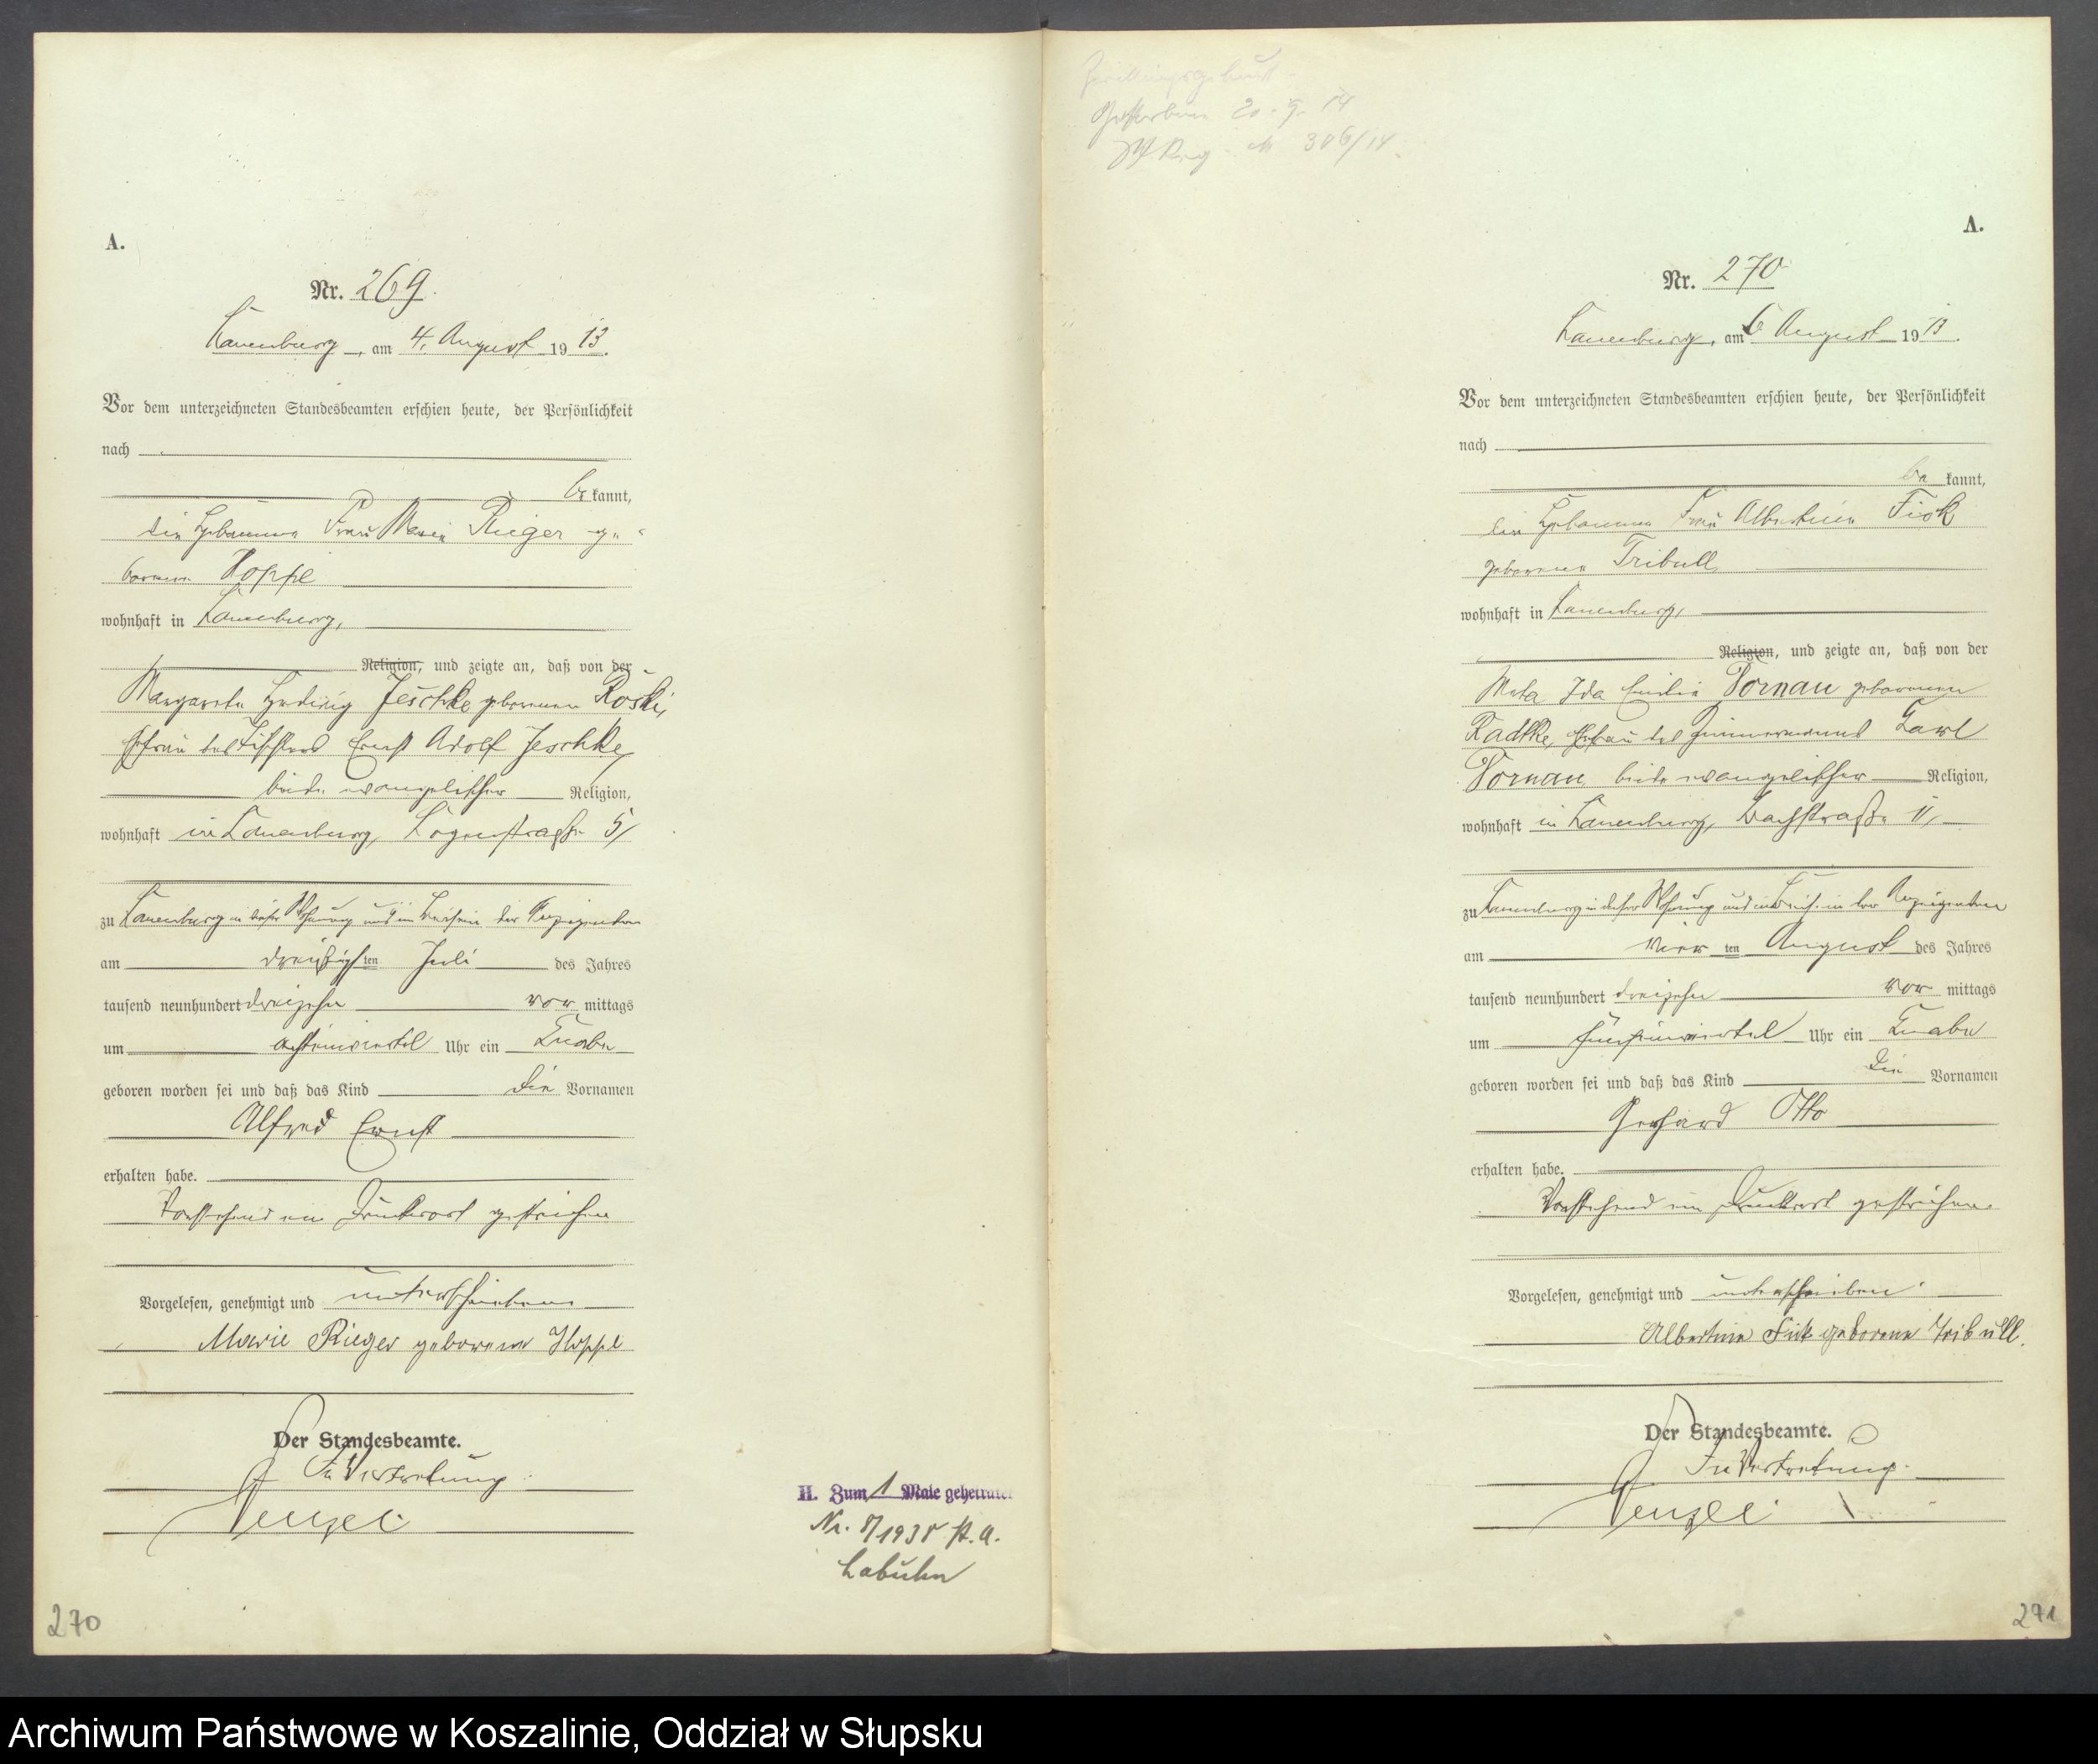 A.
Nr. 269.
Lauenburg, am 4. August 1913.
Vor dem unterzeichneten Standesbeamten erschien heute, der Persönlichkeit
nach
bekannt,
die Hebamme Frau Marie Rieger ge-
borene Hoppe
wohnhaft in Lauenburg,
Religion, und zeigte an, daß von der
Margarete Hedwig Jeschke geborenen Röske,
Ehefrau des Tischlers Ernst Adolf Jeschke,
beide evangelischer Religion,
wohnhaft in Lauenburg, Logenstraße 5,
zu Lauenburg in dieser Wohnung und im Beisein der Anzeigenden
am dreißigsten Juli des Jahres
tausend neunhundert dreizehn vormittags
um achteinviertel Uhr ein Knabe
geboren worden sei und daß das Kind die Vornamen
Alfred Ernst
erhalten habe.
Vorstehend ein Druckwort gestrichen
Vorgelesen, genehmigt und unterschrieben
Marie Rieger geborene Hoppe
Der Standesbeamte.
In Vertretung.
H. Zum 1 Male geheiratet
Nr. 8/1938 St. A.
Labuhn
270
Zwillingsgeburt
Gestorben 20.9.14
St. Reg. No 306/14.
A.
Nr. 270
Lauenburg, am 6 August 1913.
Vor dem unterzeichneten Standesbeamten erschien heute, der Persönlichkeit
nach
bekannt,
die Hebamme Frau Albertine Fick
geborene Tribull,
wohnhaft in Lauenburg,
Religion, und zeigte an, daß von der
Meta Ida Emilie Pornau geborenen
Radtke, Ehefrau des Zimmermanns Karl
Pornau, beide evangelischer Religion,
wohnhaft in Lauenburg, Bachstraße 11,
zu Lauenburg in dieser Wohnung und im Beisein der Anzeigenden
am vierten August des Jahres
tausend neunhundert dreizehn vormittags
um fünfeinviertel Uhr ein Knabe
geboren worden sei und daß das Kind die Vornamen
Gerhard Otto
erhalten habe.
Vorstehend ein Druckwort gestrichen.
Vorgelesen, genehmigt und unterschrieben
Albertine Fick geborene Tribull.
Der Standesbeamte.
In Vertretung.
271
Archiwum Państwowe w Koszalinie, Oddział w Słupsku